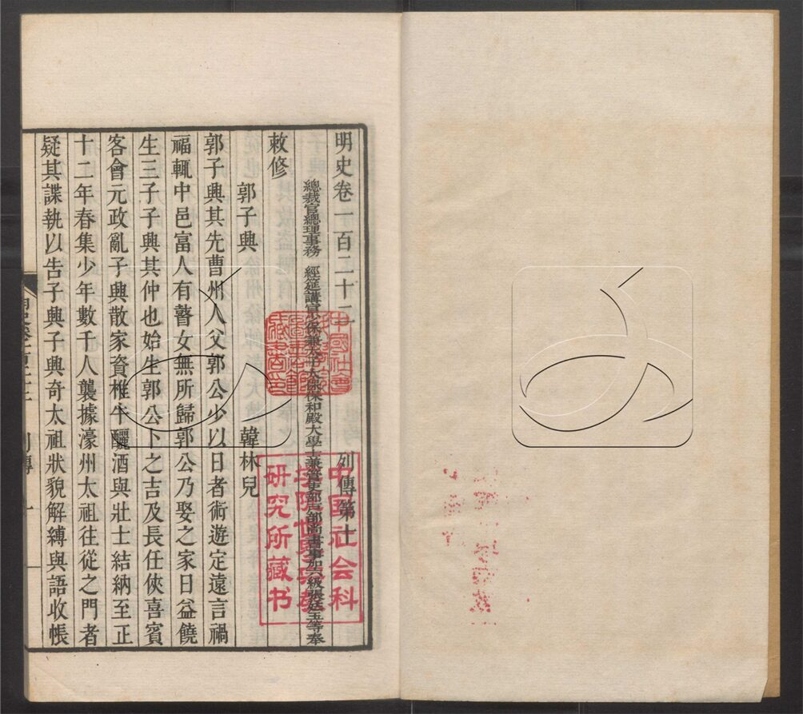 明史卷一百二十二
列傳第十
總裁官總理事務 經筵講官少保兼太子太保保和殿大學士兼管吏部戶部尚書事加六級張廷玉等奉
敕修
郭子興 韓林兒
郭子興其先曹州人父郭公少以日者術遊定遠言禍
福輒中邑富人有瞽女無所歸郭公乃娶之家日益饒
生三子子興其仲也始生郭公卜之吉及長任俠喜賓
客會元政亂子興散家資椎牛釃酒與壯士結納至正
十二年春集少年數千人襲據濠州太祖往從之門者
疑其諜執以告子興子興奇太祖狀貌解縛與語收帳
中国社会科
学院世界宗教
研究所藏书
中國社會